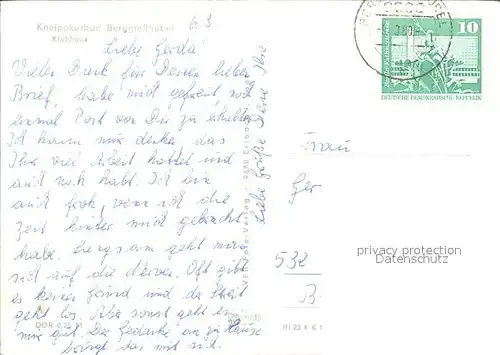 Kneippkurbad Berggießhübel
Klubhaus
6. 3
Liebe Gerda
Vielen Dank für Deinen lieben
Brief, habe mich gefreut noch
einmal Post von Dir zu erhalten
Ich kann mir denken das
Ihr viel Arbeit hattet und
auch noch habt. Ich bin
auch froh, wenn ich die
Zeit hinter mich gebracht
habe. Langsam geht mir
sich auf die Nerven. Oft gibt
es keinen Grund und der Streit
geht los. Aber sonst geht es
mir gut. Der Gedanke an zu Hause
bringt das mit sich.
Liebe Grüße Deine
DDR 0,25 M
Verlag
III 23 4 K 1
10
DEUTSCHE DEMOKRATISCHE REPUBLIK
Frau
Ger
privacy protection
Datenschutz
532
B